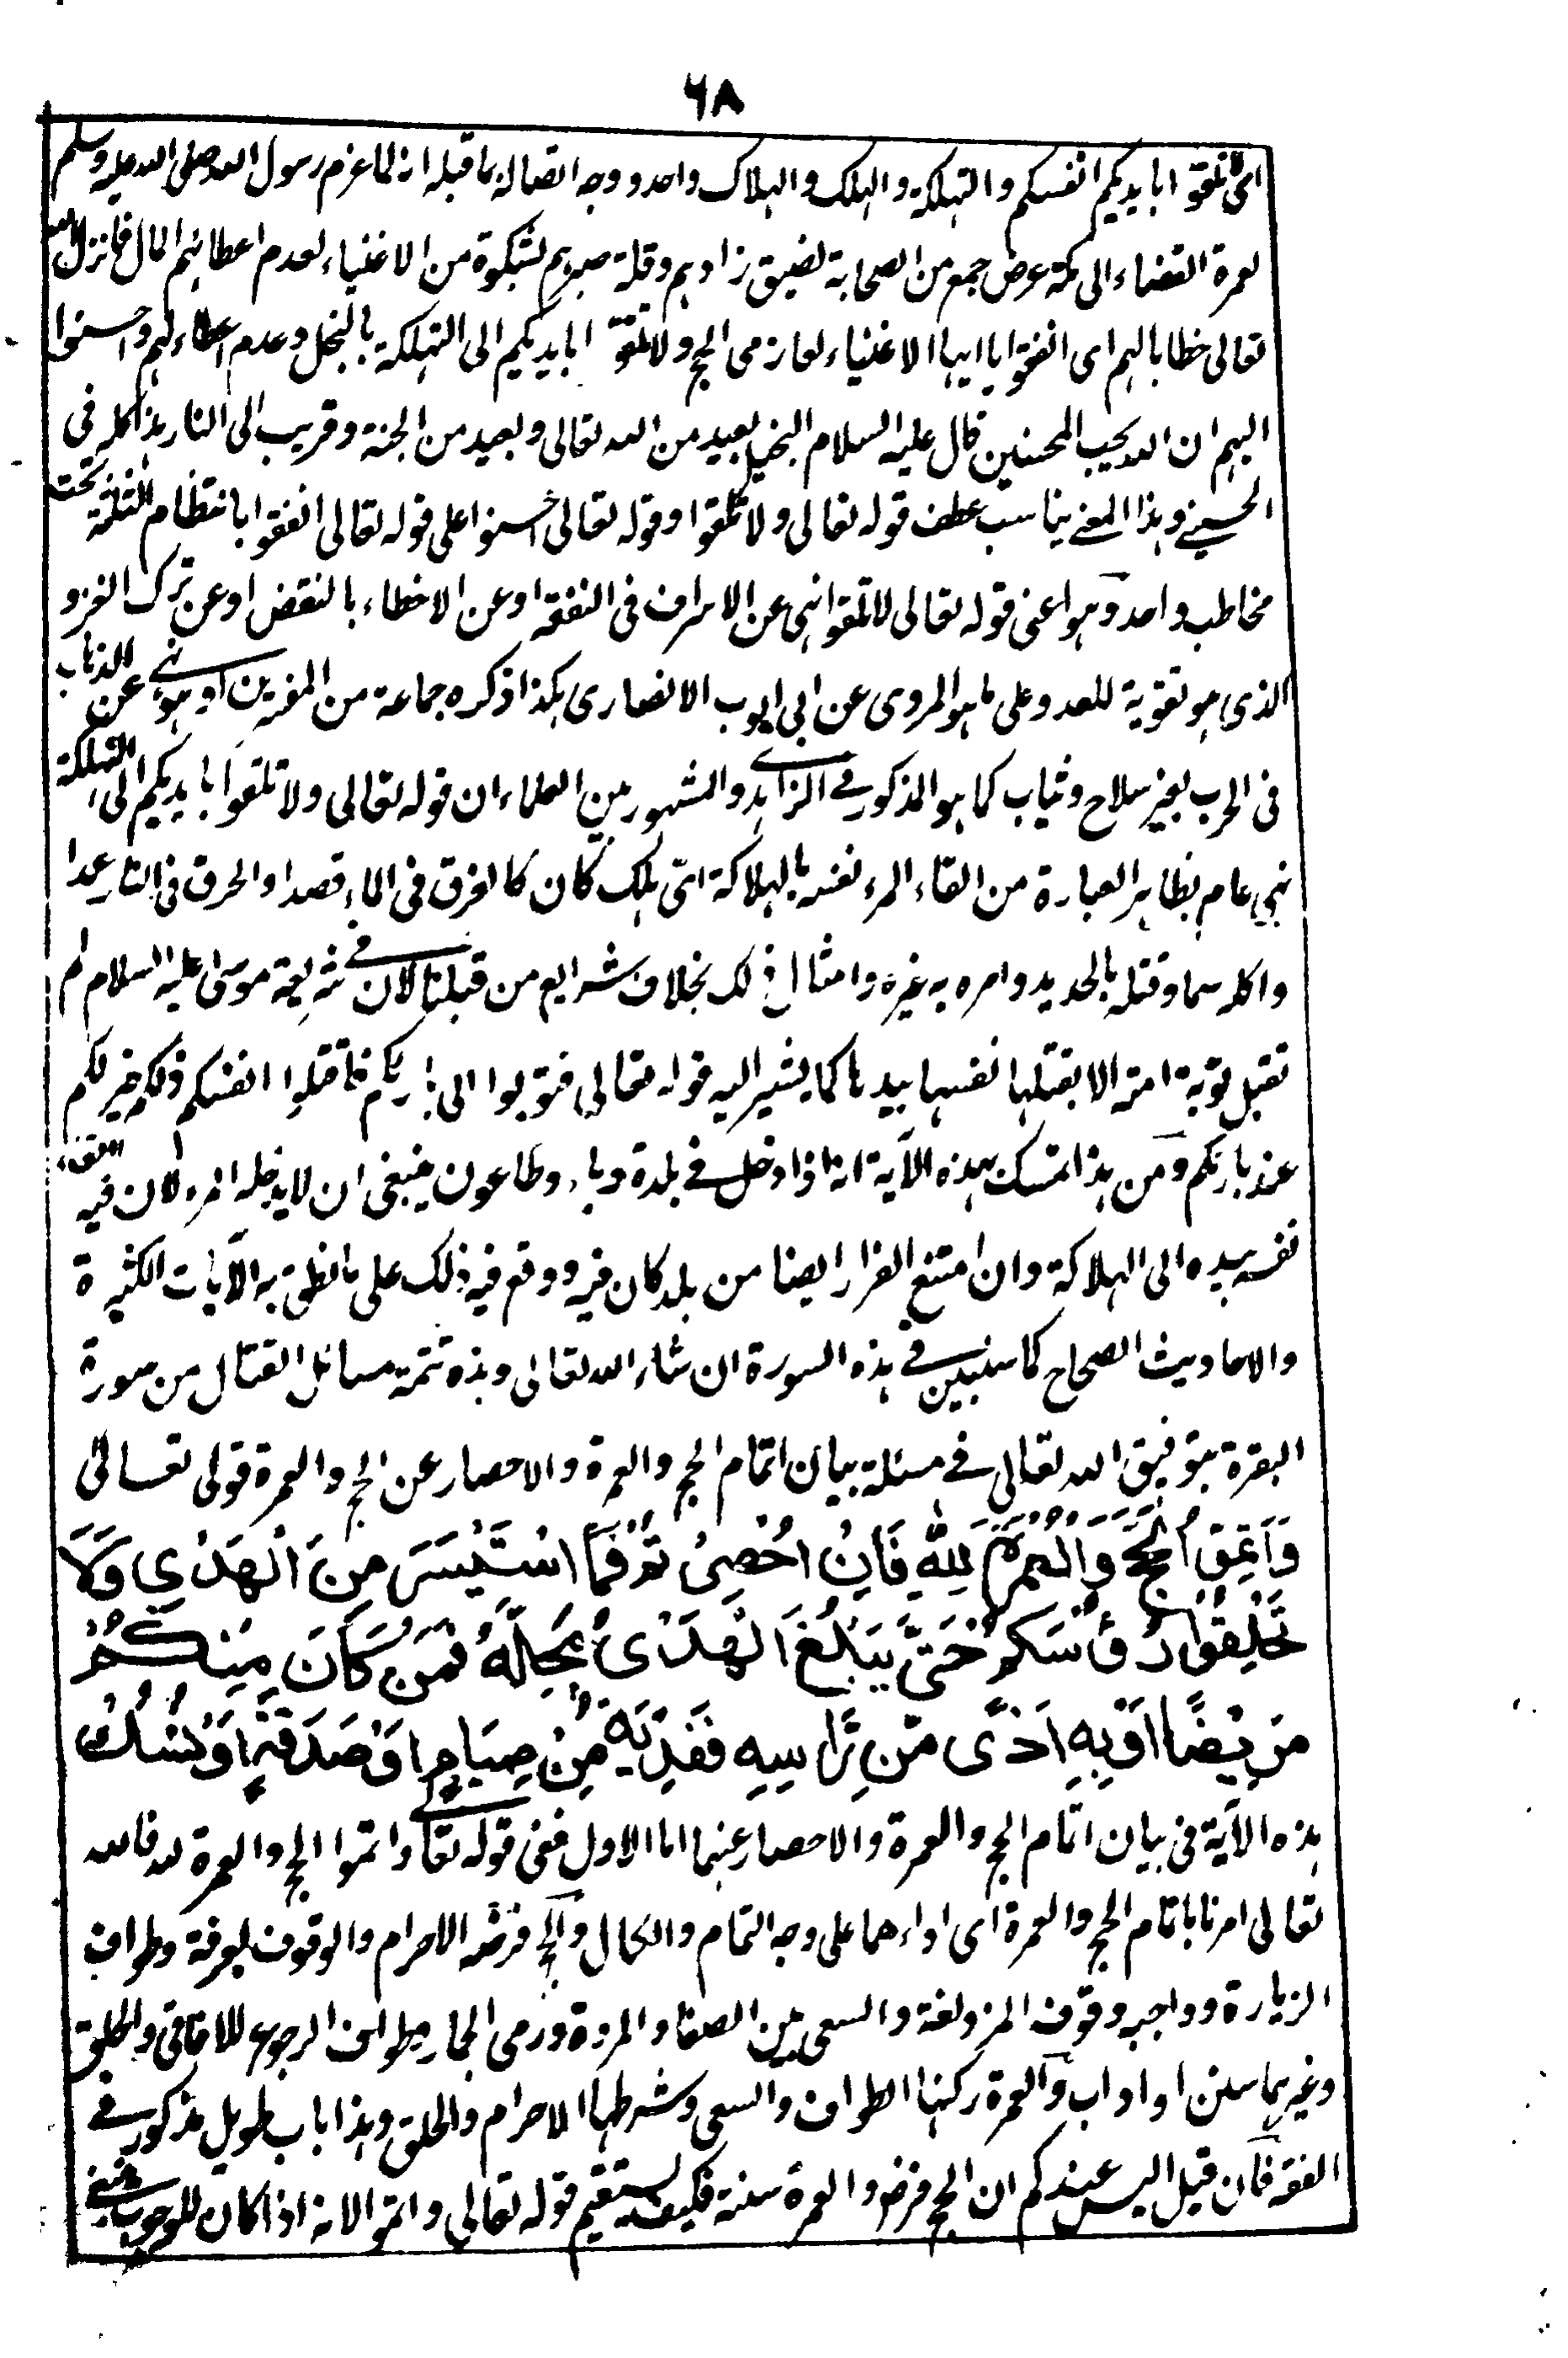 ٦٨
اى لا تلقوا بايديكم انفسكم والتهلكة والهلك والهلاك واحد ووجه اتصاله بما قبله انه لما عزم رسول الله صلى الله عليه وسلم
لعمرة القضاء الى مكة عرض جمع من الصحابة لضيق زادهم وقلة صبرهم بشكوة من الاغنياء لعدم اعطائهم المال فانزل الله
تعالى خطابا لهم اى انفقوا يا ايها الاغنياء لعازمى الحج ولا تلقوا بايديكم الى التهلكة بالبخل وعدم اعطاء لهم واحسنوا
اليهم ان الله يحب المحسنين قال عليه السلام البخيل بعيد من الله تعالى وبعيد من الجنة وقريب الى النار هذا كله فى
الحسينى وهذا المعنى يناسب عطف قوله تعالى ولا تلقوا وقوله تعالى احسنوا على قوله تعالى انفقوا بانتظام الثلثة تحت
مخاطب واحد وهو اعنى قوله تعالى لا تلقوا نهى عن الاسراف فى النفقة او عن الاخطاء بالنقض او عن ترك الغزو
الذى هو تقوية للعدو على ما هو المروى عن ابى ايوب الانصارى هكذا ذكره جماعة من المفسرين او هو نهى عن الذهاب
فى الحرب بغير سلاح وثياب كما هو المذكور فى الزاهد والمشهور بين العلماء ان قوله تعالى ولا تلقوا بايديكم الى التهلكة
نهى عام بظاهر العبارة من القاء المرء نفسه بالهلاكة اى هلك كان كالغرق فى الماء قصدا والحرق فى النار عمدا
واكله سما وقتله بالحديد وامره به غيره وامثال ذلك بخلاف شرايع من قبلنا لان فى شريعة موسى عليه السلام لم
تقبل توبة امته الا بقتلها نفسها بيدها كما يشير اليه قوله تعالى فتوبوا الى بارئكم فاقتلوا انفسكم ذلكم خير لكم
عند بارئكم ومن هذا تمسك بهذه الآية انه اذا دخل فى بلدة وباء وطاعون ينبغى ان لا يدخله المرء لان فيه القاء
نفسه بيده الى الهلاكة وان امتنع الفرار ايضا من بلد كان فيه ووقع فيه ذلك على ما نطق به الآيات الكثيرة
والاحاديث الصحاح كما سنبين فى هذه السورة ان شاء الله تعالى وهذه تتمة مسائل القتال من سورة
البقرة بتوفيق الله تعالى فى مسئلة بيان اتمام الحج والعمرة والاحصار عن الحج والعمرة قوله تعالى
وَاَتِمُّوا الْحَجَّ وَالْعُمْرَةَ لِلّٰهِ فَاِنْ اُحْصِرْتُمْ فَمَا اسْتَيْسَرَ مِنَ الْهَدْىِ وَلَا
تَحْلِقُوْا رُءُوْسَكُمْ حَتّٰى يَبْلُغَ الْهَدْىُ مَحِلَّهٗ فَمَنْ كَانَ مِنْكُمْ
مَرِيْضًا اَوْ بِهٖ اَذًى مِّنْ رَّاْسِهٖ فَفِدْيَةٌ مِّنْ صِيَامٍ اَوْ صَدَقَةٍ اَوْ نُسُكٍ
هذه الآية فى بيان اتمام الحج والعمرة والاحصار عنهما اما الاول ففى قوله تعالى واتموا الحج والعمرة لله فالله
تعالى امرنا باتمام الحج والعمرة اى اداءهما على وجه التمام والكمال والحج فرضه الاحرام والوقوف بعرفة وطواف
الزيارة وواجبه وقوف المزدلفة والسعى بين الصفا والمروة ورمى الجمار وطواف الرجوع للافاقى والحلق
وغيرهما سنن او اداب والعمرة ركنها الطواف والسعى وشرطها الاحرام والحلق وهذا باب طويل مذكور فى
الفقه فان قيل اليس عندكم ان الحج فرض والعمرة سنة فكيف يستقيم قوله تعالى واتموا لانه اذا كان للوجوب ينبغى